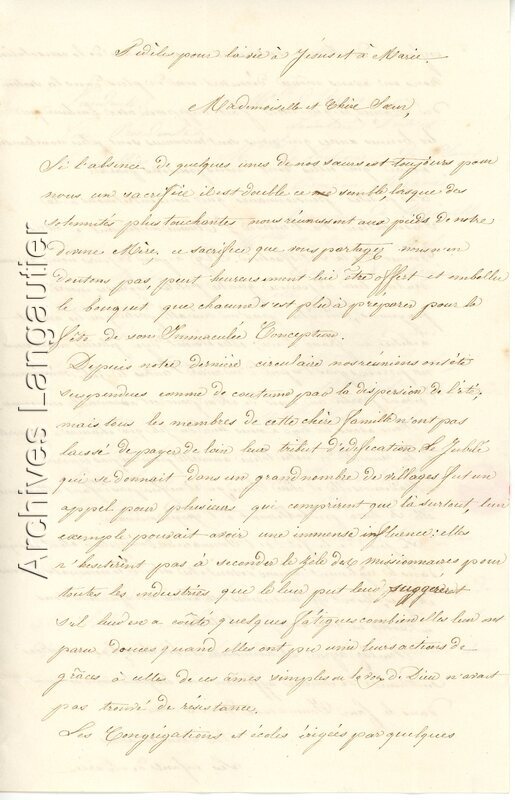 Fidèles pour la vie à Jésus et à Marie.
Mademoiselle et Chère Sœur,
Si l'absence de quelques unes de nos sœurs est toujours pour
nous un sacrifice il est double ce me semble, lorsque des
solennités plus touchantes nous réunissent aux pieds de notre
divine Mère. ce sacrifice que vous partagez nous n'en
doutons pas, peut heureusement lui être offert et embellir
le bouquet que chacune s'est plu à préparer pour la
fête de son Immaculée Conception.
Depuis notre dernière circulaire nos réunions ont été
suspendues comme de coutume par la dispersion de l'été,
mais tous les membres de cette chère famille n'ont pas
laissé de payer de loin leur tribut d'édification. Le Jubilé
qui se donnait dans un grand nombre de villages fut un
appel pour plusieurs qui comprirent que là surtout, leur
exemple pouvait avoir une immense influence: elles
n'hésitèrent pas à seconder le zèle des missionnaires pour
toutes les industries que le leur put leur suggérer et
s'il leur en a coûté quelques fatigues combien elles leur ont
paru douces quand elles ont pu unir leurs actions de
grâces à celles de ces âmes simples où la voix de Dieu n'avait
pas trouvé de résistance.
Les Congrégations et écoles érigées par quelques
Archives Langautier